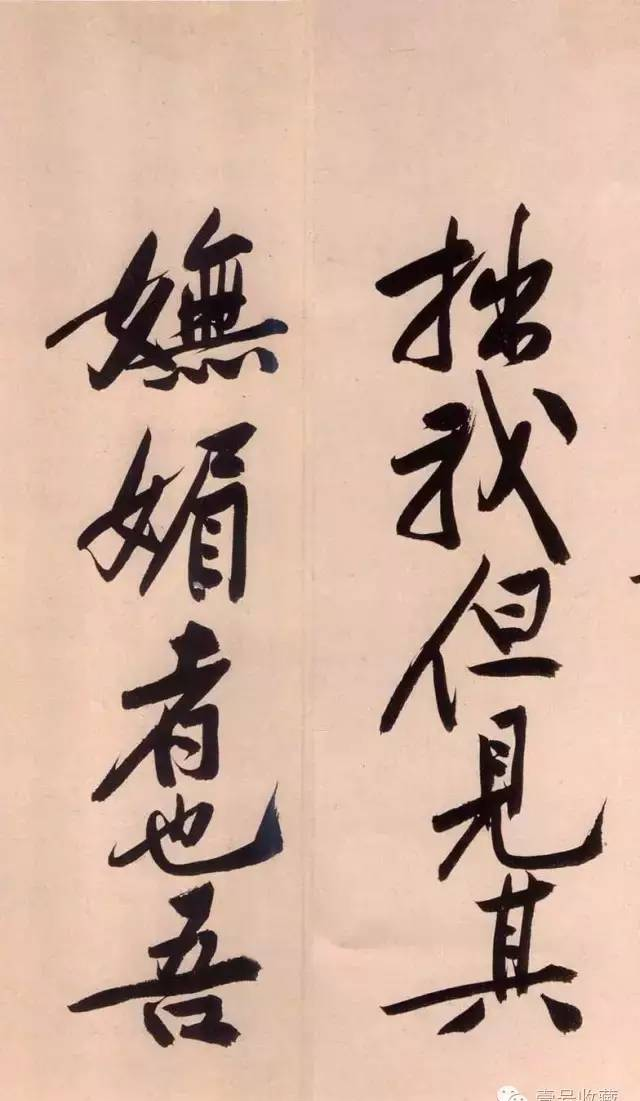 拙我但见其
嫵媚者也吾
壹号收藏